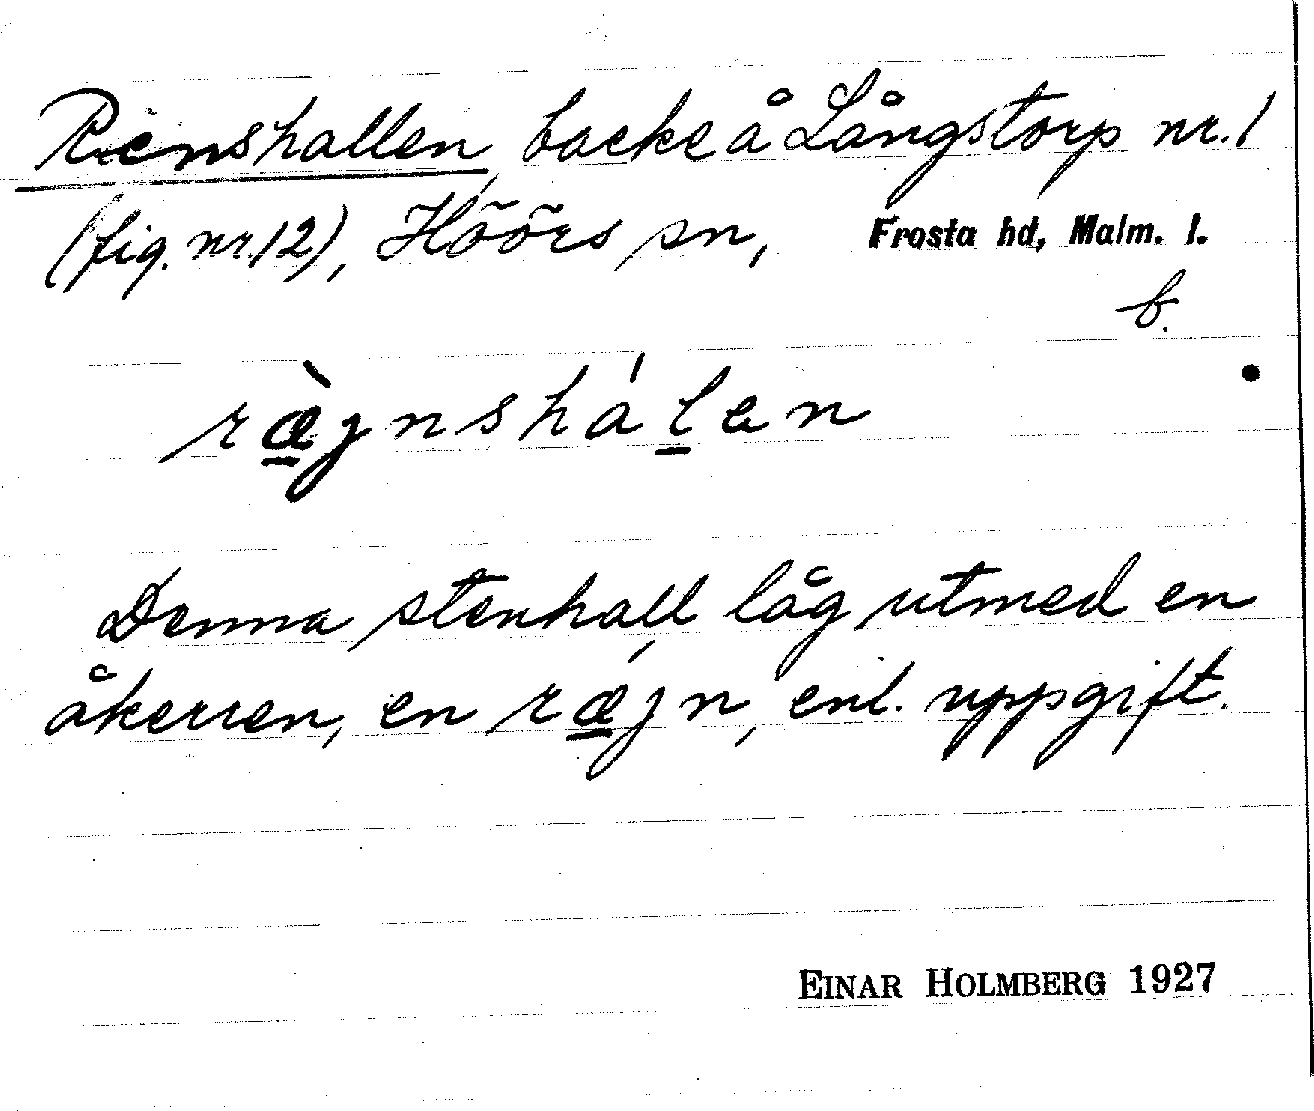 Renshallen, backe å Långstorp nr. 1
(fig. nr. 12), Höörs sn, Frosta hd, Malm. l.
b.
ræ̀jnshálen
Denna stenhall låg utmed en
åkerren, en rǽjn, enl. uppgift.
EINAR HOLMBERG 1927